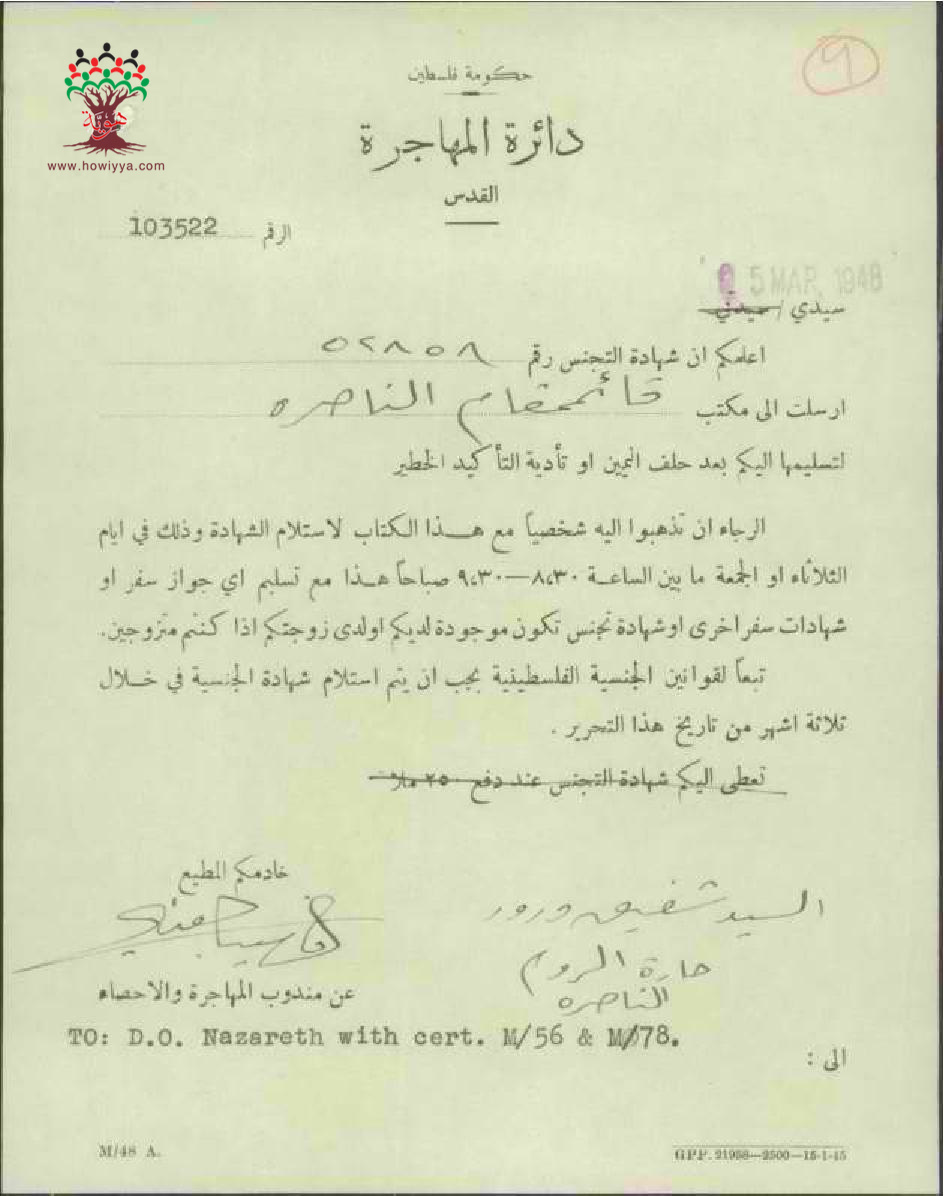 هوية
www.howiyya.com
9
حكومة فلسطين
دائرة المهاجرة
القدس
الرقم 103522
5 MAR. 1948
سيدي / سيدتي
اعلمكم ان شهادة التجنس رقم ٥٢٨٥٨
ارسلت الى مكتب قائمقام الناصره
لتسليمها اليكم بعد حلف اليمين او تأدية التأكيد الخطير
الرجاء ان تذهبوا اليه شخصياً مع هذا الكتاب لاستلام الشهادة وذلك في ايام
الثلاثاء او الجمعة ما بين الساعة ٨،٣٠—٩،٣٠ صباحاً هذا مع تسليم اي جواز سفر او
شهادات سفر اخرى او شهادة تجنس تكون موجودة لديكم او لدى زوجتكم اذا كنتم متزوجين.
تبعاً لقوانين الجنسية الفلسطينية يجب ان يتم استلام شهادة الجنسية في خلال
ثلاثة اشهر من تاريخ هذا التحرير .
تعطى اليكم شهادة التجنس عند دفع ٢٥٠ ملا
خادمكم المطيع
السيد شفيق ورور
حارة الروم
الناصره
عن مندوب المهاجرة والاحصاء
TO: D.O. Nazareth with cert. M/56 & M/78.
الى :
M/48 A.
GPP. 21958—2500—15-1-45